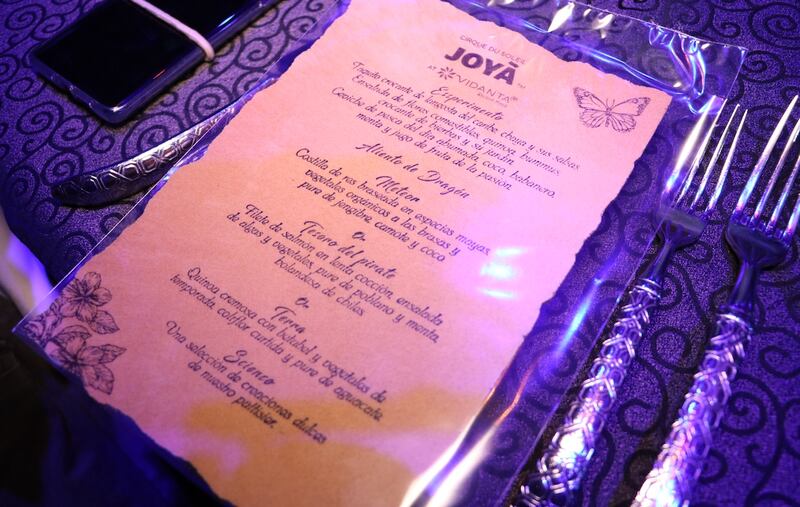 CIRQUE DU SOLEIL
JOYÀ™
AT VIDANTA®
Experimento
Taquito crocante de langosta del caribe, chaya y sus salsas
Ensalada de flores comestibles, quinoa, hummus
crocante de huerto y su jardín.
Ceviche de pesca del día ahumada, coco, habanero,
menta y jugo de fruta de la pasión.
Aliento de Dragón
Meteor
Costilla de res braseada en especias mayas,
vegetales orgánicos a las brasas y
pure de jengibre, camote y coco
Or
Tesoro del pirata
Filete de salmón, en lenta cocción, ensalada
de algas y vegetales, pure de poblano y menta,
holandesa de chiles.
Or
Terra
Quinoa cremosa con betubel y vegetales de
temporada, coliflor curtida y pure de aguacate.
Science
Una selección de creaciones dulces
de nuestro patissier...